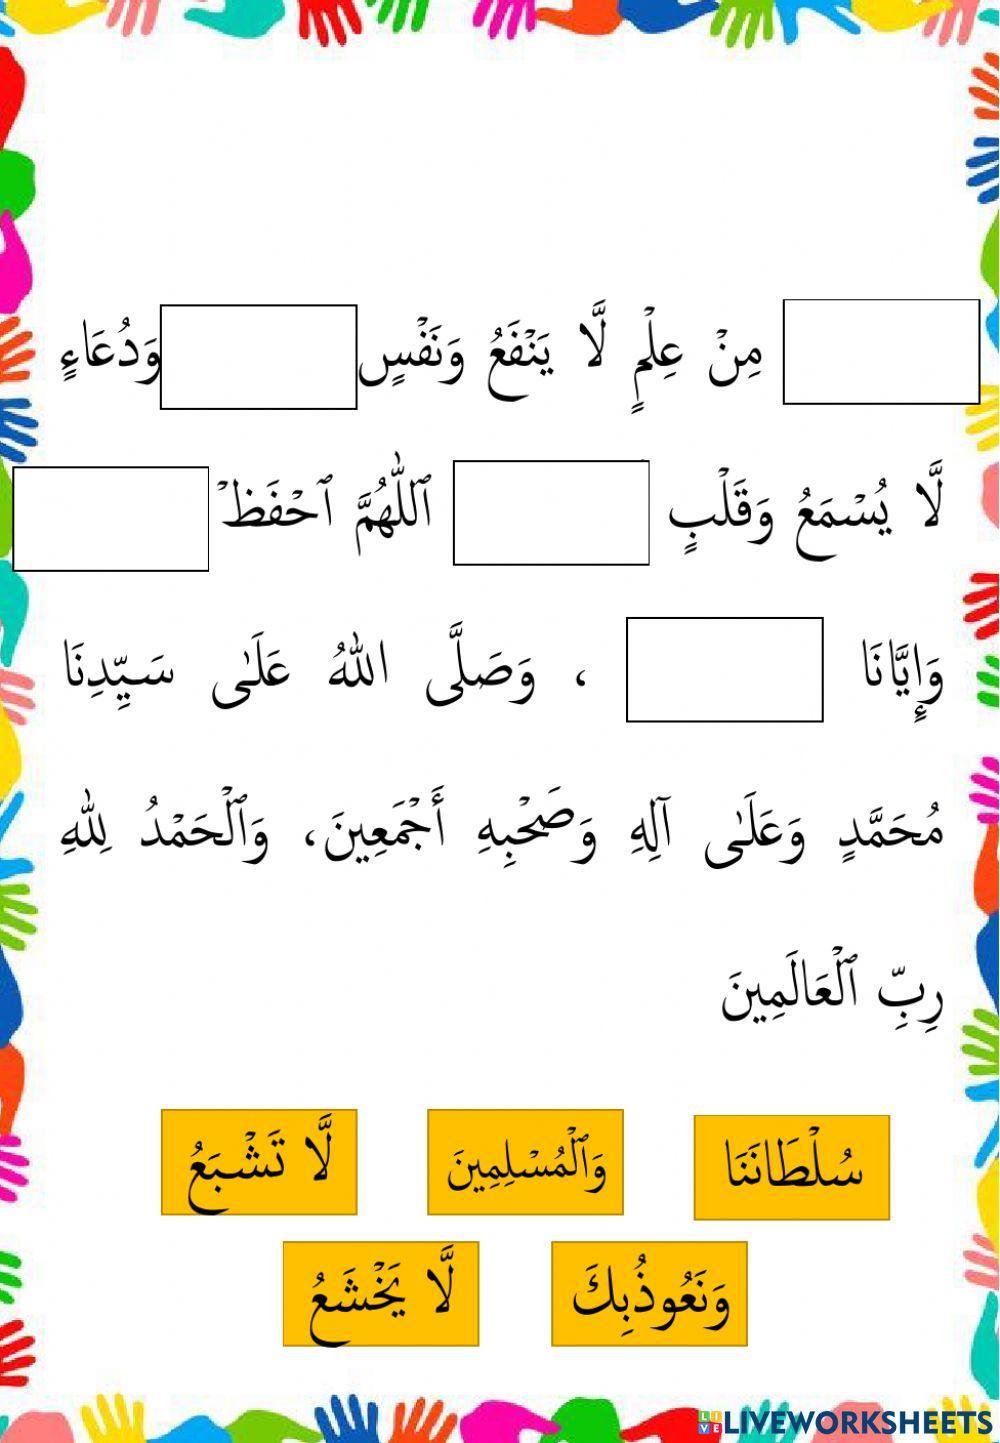 مِنْ عِلْمٍ لَّا يَنْفَعُ وَنَفْسٍ وَدُعَاءٍ
لَّا يُسْمَعُ وَقَلْبٍ ٱللّٰهُمَّ ٱحْفَظْ
وَإِيَّانَا ، وَصَلَّى اللهُ عَلَىٰ سَيِّدِنَا
مُحَمَّدٍ وَعَلَىٰ آلِهِ وَصَحْبِهِ أَجْمَعِينَ، وَٱلْحَمْدُ لِلهِ
رِبِّ ٱلْعَالَمِينَ
سُلْطَانَنَا وَٱلْمُسْلِمِينَ لَّا تَشْبَعُ
وَنَعُوذُبِكَ لَّا يَخْشَعُ
LIVEWORKSHEETS